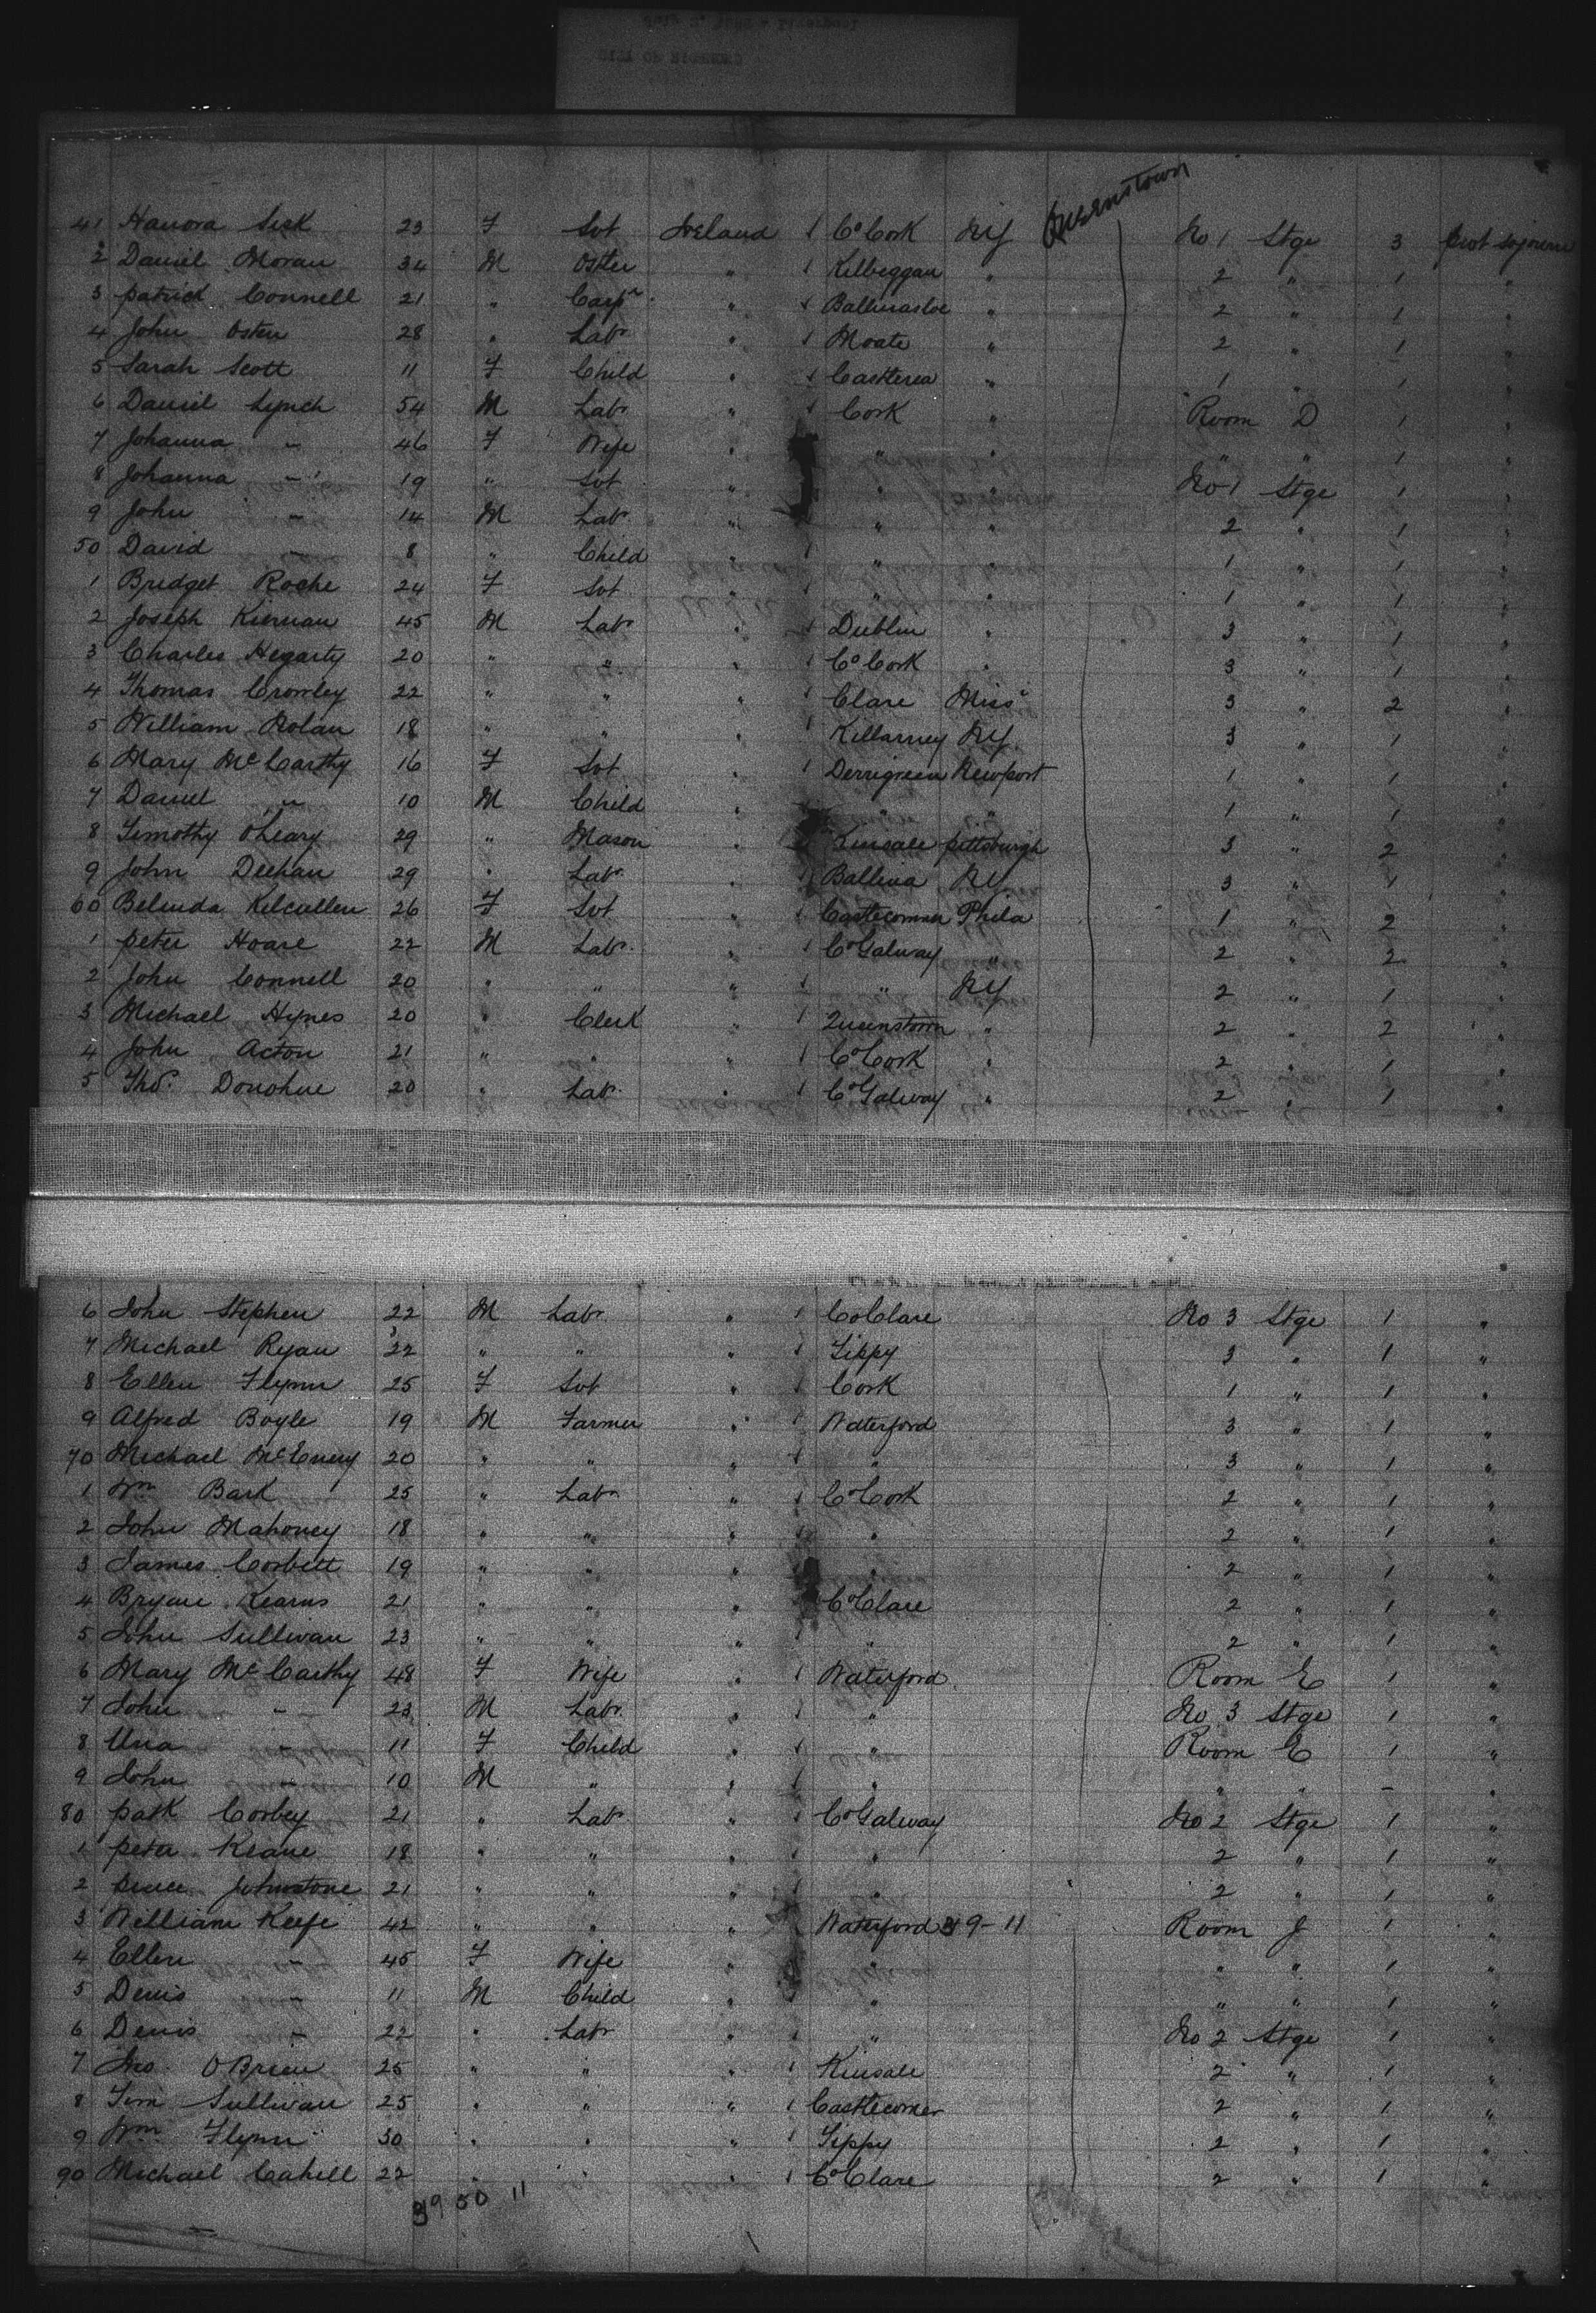 Queenstown
41 Hanora Sisk 23 F Svt Ireland 1 Co Cork NY No 1 Stge 3 prot sojourn
2 Daniel Moran 34 M " 1 Kilbeggan " 2 " 1 "
3 patrick Connell 21 " Carpr " 1 Ballinasloe " 2 " 1 "
4 John Osten 28 " Labr " 1 Moate " 2 " 1 "
5 Sarah Scott 11 F Child " 1 Castlerea " 1 " 1 "
6 Daniel Lynch 54 M Labr " 1 Cork " Room D 1 "
7 Johanna " 46 F Wife " " " " " 1 "
8 Johanna " 19 " Svt " " " No 1 Stge 1 "
9 John " 14 M Labr " " " 2 " 1 "
50 David " 8 " Child " 1 " " 1 " 1 "
1 Bridget Roche 24 F Svt " 1 " " 1 " 1 "
2 Joseph Kiernan 45 M Labr " 1 Dublin " 3 " 1 "
3 Charles Hegarty 20 " " " 1 Co Cork " 3 " 1 "
4 Thomas Crowley 22 " " " 1 Clare Miss 3 " 2 "
5 William Nolan 18 " " " 1 Killarney NY 3 " 1 "
6 Mary McCarthy 16 F Svt " 1 Derrigreen Newport 1 " 1 "
7 Daniel " 10 M Child " " " 1 " 1 "
8 Timothy OLeary 29 " Mason " Kinsale pittsburgh 3 " 2 "
9 John Deehan 29 " Labr " 1 Ballina NY 3 " 1 "
60 Belinda Kilcullen 26 F Svt " 1 Castlecomer Phila 1 " 2 "
1 peter Hoare 22 M Labr " 1 Co Galway " 2 " 2 "
2 John Connell 20 " " " 1 " NY 2 " 1 "
3 Michael Hynes 20 " Clerk " 1 Queenstown " 2 " 2 "
4 John Acton 21 " " " 1 Co Cork " 2 " 1 "
5 Thos. Donohue 20 " Labr " 1 Co Galway " 2 " 1 "
6 John Stephen 22 M Labr " 1 Co Clare No 3 Stge 1 "
7 Michael Ryan 22 " " " 1 Tippy 3 " 1 "
8 Ellen Flynn 25 F Svt " 1 Cork 1 " 1 "
9 Alfred Boyle 19 M Farmer " 1 Waterford 3 " 1 "
70 Michael McEnery 20 " " " 1 " 3 " 1 "
1 Wm Bark 25 " Labr " 1 Co Cork 2 " 1 "
2 John Mahoney 18 " " " 1 " 2 " 1 "
3 James Corbett 19 " " " " 2 " 1 "
4 Bryan Kearns 21 " " " Co Clare 2 " 1 "
5 John Sullivan 23 " " " 1 " 2 " 1 "
6 Mary McCarthy 48 F Wife " 1 Waterford Room E 1 "
7 John " 23 M Labr " 1 " No 3 Stge 1 "
8 Una " 11 F Child " 1 " Room E 1 "
9 John " 10 M " " 1 " " " - "
80 patk Corbey 21 " Labr " 1 Co Galway No 2 Stge 1 "
1 peter Keane 18 " " " 1 " 2 " 1 "
2 Johnstone 21 " " " 1 " 2 " 1 "
3 William Keefe 42 " " " 1 Waterford 39-11 Room J 1 "
4 Ellen " 45 F Wife " " " " 1 "
5 Denis " 11 M Child " " " " 1 "
6 Denis " 22 " Labr " 1 " No 2 Stge 1 "
7 Jno. OBrien 25 " " " 1 Kinsale 2 " 1 "
8 Tim Sullivan 25 " " " 1 Castlecomer 2 " 1 "
9 Wm Flynn 30 " " " 1 Tippy 2 " 1 "
90 Michael Cahill 22 " " " 1 Co Clare 2 " 1 "
39 50 11